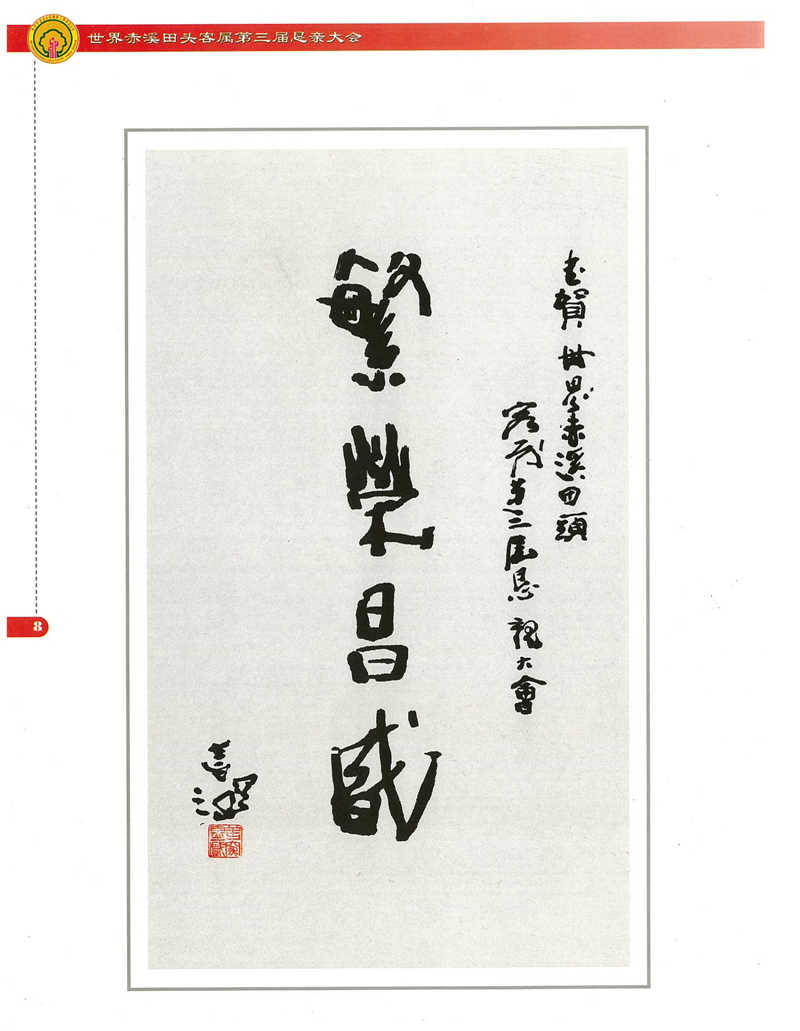 世界赤溪田头客属第三届恳亲大会
書賀世界赤溪田頭
客属第三届恳親大會
繁榮昌盛
8